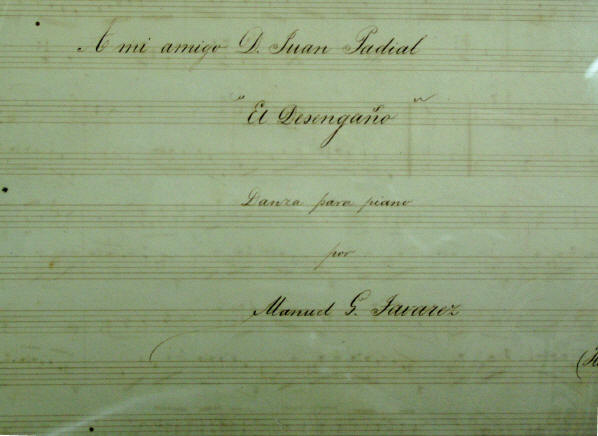 A mi amigo D. Juan Padial
"El Desengaño"
Danza para piano
por
Manuel G. Tavarez